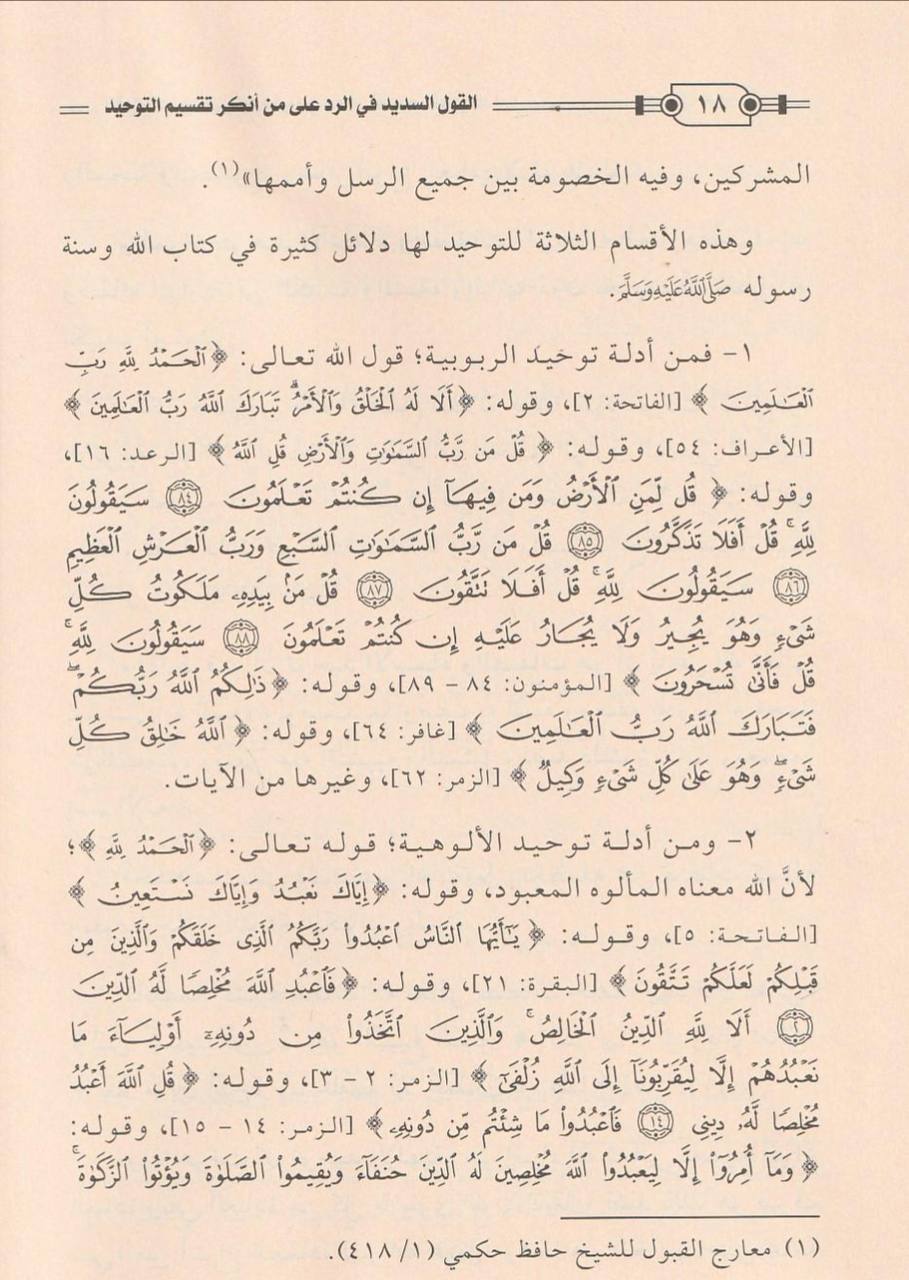 ١٨ القول السديد في الرد على من أنكر تقسيم التوحيد
المشركين، وفيه الخصومة بين جميع الرسل وأممها»(١).
وهذه الأقسام الثلاثة للتوحيد لها دلائل كثيرة في كتاب الله وسنة
رسوله صَلَّى اللَّهُ عَلَيْهِ وَسَلَّمَ.
١- فمن أدلة توحيد الربوبية؛ قول الله تعالى: ﴿الْحَمْدُ لِلَّهِ رَبِّ
الْعَالَمِينَ﴾ [الفاتحة: ٢]، وقوله: ﴿أَلَا لَهُ الْخَلْقُ وَالْأَمْرُ ۗ تَبَارَكَ اللَّهُ رَبُّ الْعَالَمِينَ﴾
[الأعراف: ٥٤]، وقوله: ﴿قُلْ مَن رَّبُّ السَّمَٰوَٰتِ وَالْأَرْضِ قُلِ اللَّهُ﴾ [الرعد: ١٦]،
وقوله: ﴿قُل لِّمَنِ الْأَرْضُ وَمَن فِيهَآ إِن كُنتُمْ تَعْلَمُونَ ٨٤ سَيَقُولُونَ
لِلَّهِ ۚ قُلْ أَفَلَا تَذَكَّرُونَ ٨٥ قُلْ مَن رَّبُّ السَّمَٰوَٰتِ السَّبْعِ وَرَبُّ الْعَرْشِ الْعَظِيمِ
٨٦ سَيَقُولُونَ لِلَّهِ ۚ قُلْ أَفَلَا تَتَّقُونَ ٨٧ قُلْ مَنۢ بِيَدِهِۦ مَلَكُوتُ كُلِّ
شَىْءٍ وَهُوَ يُجِيرُ وَلَا يُجَارُ عَلَيْهِ إِن كُنتُمْ تَعْلَمُونَ ٨٨ سَيَقُولُونَ لِلَّهِ ۚ
قُلْ فَأَنَّىٰ تُسْحَرُونَ﴾ [المؤمنون: ٨٤ - ٨٩]، وقوله: ﴿ذَٰلِكُمُ اللَّهُ رَبُّكُمْ ۖ
فَتَبَارَكَ اللَّهُ رَبُّ الْعَٰلَمِينَ﴾ [غافر: ٦٤]، وقوله: ﴿اللَّهُ خَٰلِقُ كُلِّ
شَىْءٍ ۖ وَهُوَ عَلَىٰ كُلِّ شَىْءٍ وَكِيلٌ﴾ [الزمر: ٦٢]، وغيرها من الآيات.
٢- ومن أدلة توحيد الألوهية؛ قوله تعالى: ﴿الْحَمْدُ لِلَّهِ﴾؛
لأنَّ الله معناه المألوه المعبود، وقوله: ﴿إِيَّاكَ نَعْبُدُ وَإِيَّاكَ نَسْتَعِينُ﴾
[الفاتحة: ٥]، وقوله: ﴿يَٰٓأَيُّهَا النَّاسُ اعْبُدُوا۟ رَبَّكُمُ الَّذِى خَلَقَكُمْ وَالَّذِينَ مِن
قَبْلِكُمْ لَعَلَّكُمْ تَتَّقُونَ﴾ [البقرة: ٢١]، وقوله: ﴿فَاعْبُدِ اللَّهَ مُخْلِصًا لَّهُ الدِّينَ
٢ أَلَا لِلَّهِ الدِّينُ الْخَالِصُ ۚ وَالَّذِينَ اتَّخَذُوا۟ مِن دُونِهِۦٓ أَوْلِيَآءَ مَا
نَعْبُدُهُمْ إِلَّا لِيُقَرِّبُونَآ إِلَى اللَّهِ زُلْفَىٰٓ﴾ [الزمر: ٢ - ٣]، وقوله: ﴿قُلِ اللَّهَ أَعْبُدُ
مُخْلِصًا لَّهُۥ دِينِى ١٤ فَاعْبُدُوا۟ مَا شِئْتُم مِّن دُونِهِۦ﴾ [الزمر: ١٤ - ١٥]، وقوله:
﴿وَمَآ أُمِرُوٓا۟ إِلَّا لِيَعْبُدُوا۟ اللَّهَ مُخْلِصِينَ لَهُ الدِّينَ حُنَفَآءَ وَيُقِيمُوا۟ الصَّلَوٰةَ وَيُؤْتُوا۟ الزَّكَوٰةَ ۚ
(١) معارج القبول للشيخ حافظ حكمي (١/ ٤١٨).